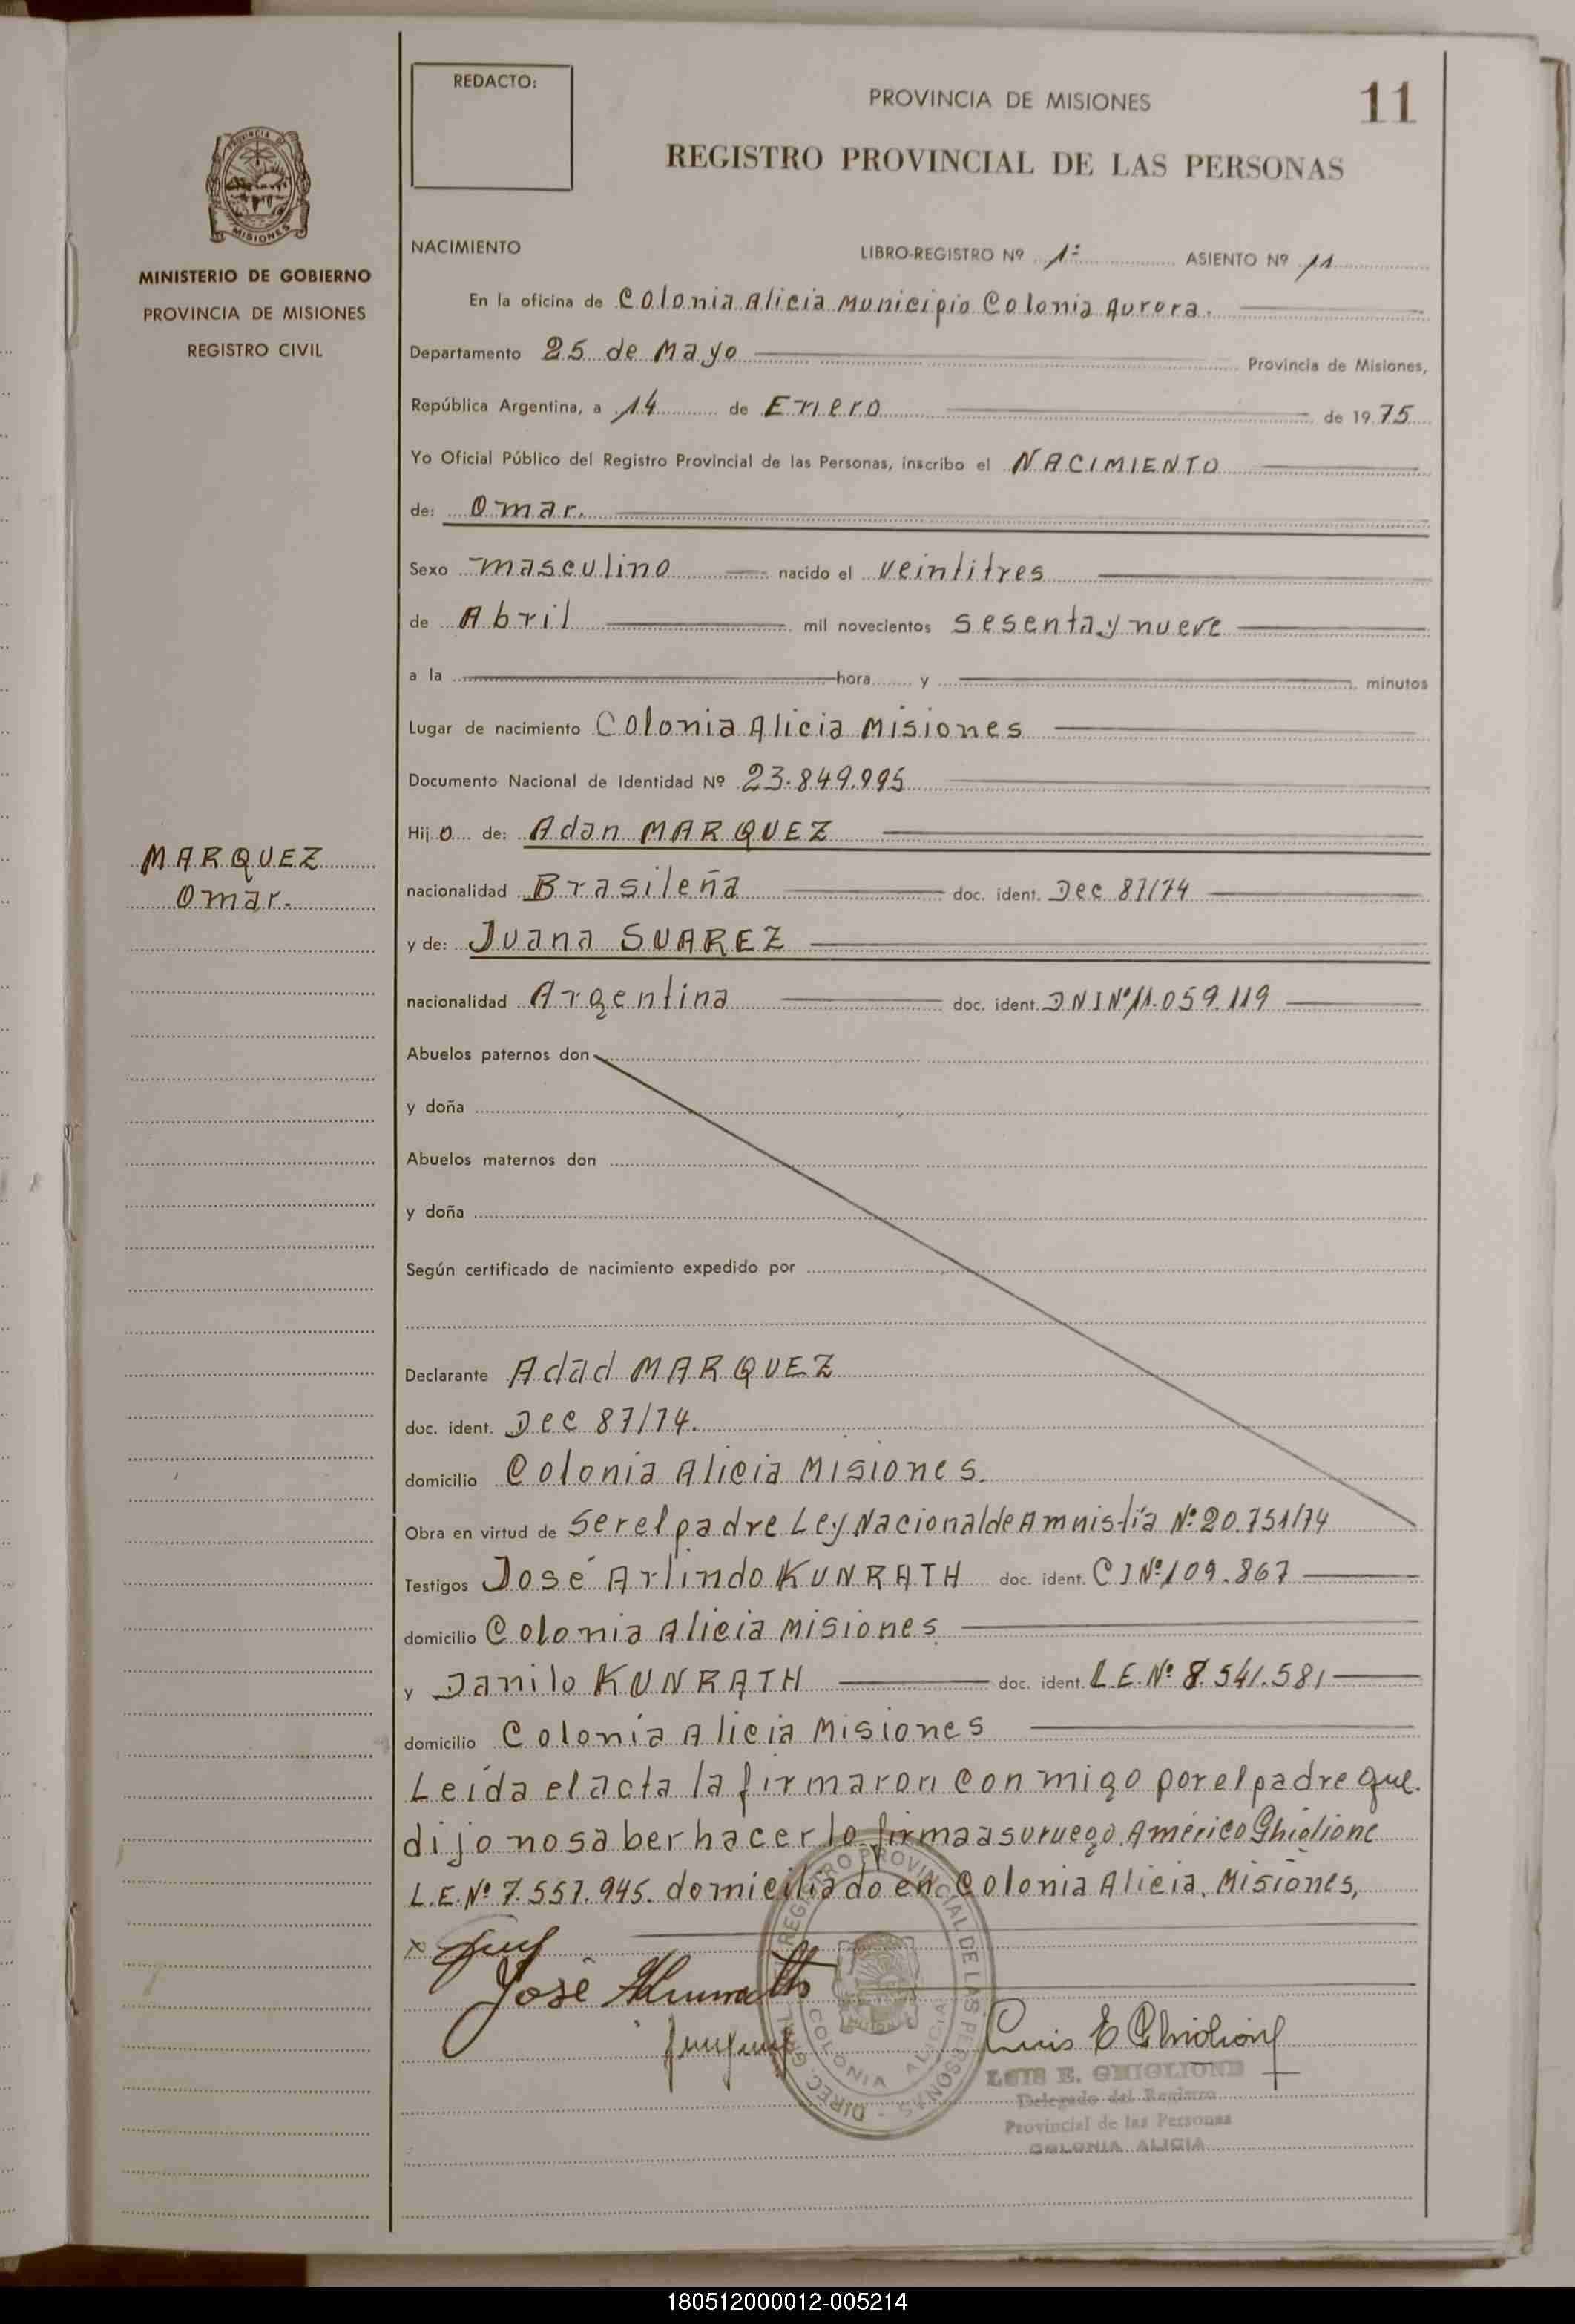 REDACTO:
PROVINCIA DE MISIONES
11
REGISTRO PROVINCIAL DE LAS PERSONAS
PROVINCIA DE
MISIONES
MINISTERIO DE GOBIERNO
PROVINCIA DE MISIONES
REGISTRO CIVIL
NACIMIENTO LIBRO-REGISTRO Nº 1º ASIENTO Nº 11
En la oficina de Colonia Alicia Municipio Colonia Aurora.
Departamento 25 de Mayo Provincia de Misiones,
República Argentina, a 14 de Enero de 1975
Yo Oficial Público del Registro Provincial de las Personas, inscribo el NACIMIENTO
de: Omar.
Sexo masculino nacido el veintitres
de Abril mil novecientos sesenta y nueve
a la hora y minutos
Lugar de nacimiento Colonia Alicia Misiones
Documento Nacional de Identidad Nº 23.849.995
Hijo de: Adan MARQUEZ
MARQUEZ
Omar.
nacionalidad Brasileña doc. ident. Dec 87/74
y de: Juana SUAREZ
nacionalidad Argentina doc. ident. DNI Nº 11.059.119
Abuelos paternos don
y doña
Abuelos maternos don
y doña
Según certificado de nacimiento expedido por
Declarante Adad MARQUEZ
doc. ident. Dec 87/74.
domicilio Colonia Alicia Misiones.
Obra en virtud de ser el padre Ley Nacional de Amnistía Nº 20.751/74
Testigos José Arlindo KUNRATH doc. ident. CI Nº 109.867
domicilio Colonia Alicia Misiones
y Danilo KUNRATH doc. ident. L.E. Nº 8.541.581
domicilio Colonia Alicia Misiones
Leída el acta la firmaron conmigo por el padre que
dijo no saber hacerlo firma a su ruego Américo Ghiglione
L.E. Nº 7.557.945. domiciliado en Colonia Alicia, Misiones,
José
Luis E Ghiglione
DIREC. GRAL. REGISTRO PROVINCIAL DE LAS PERSONAS
COLONIA ALICIA
LUIS E. GHIGLIONE
Delegado del Registro
Provincial de las Personas
COLONIA ALICIA
180512000012-005214